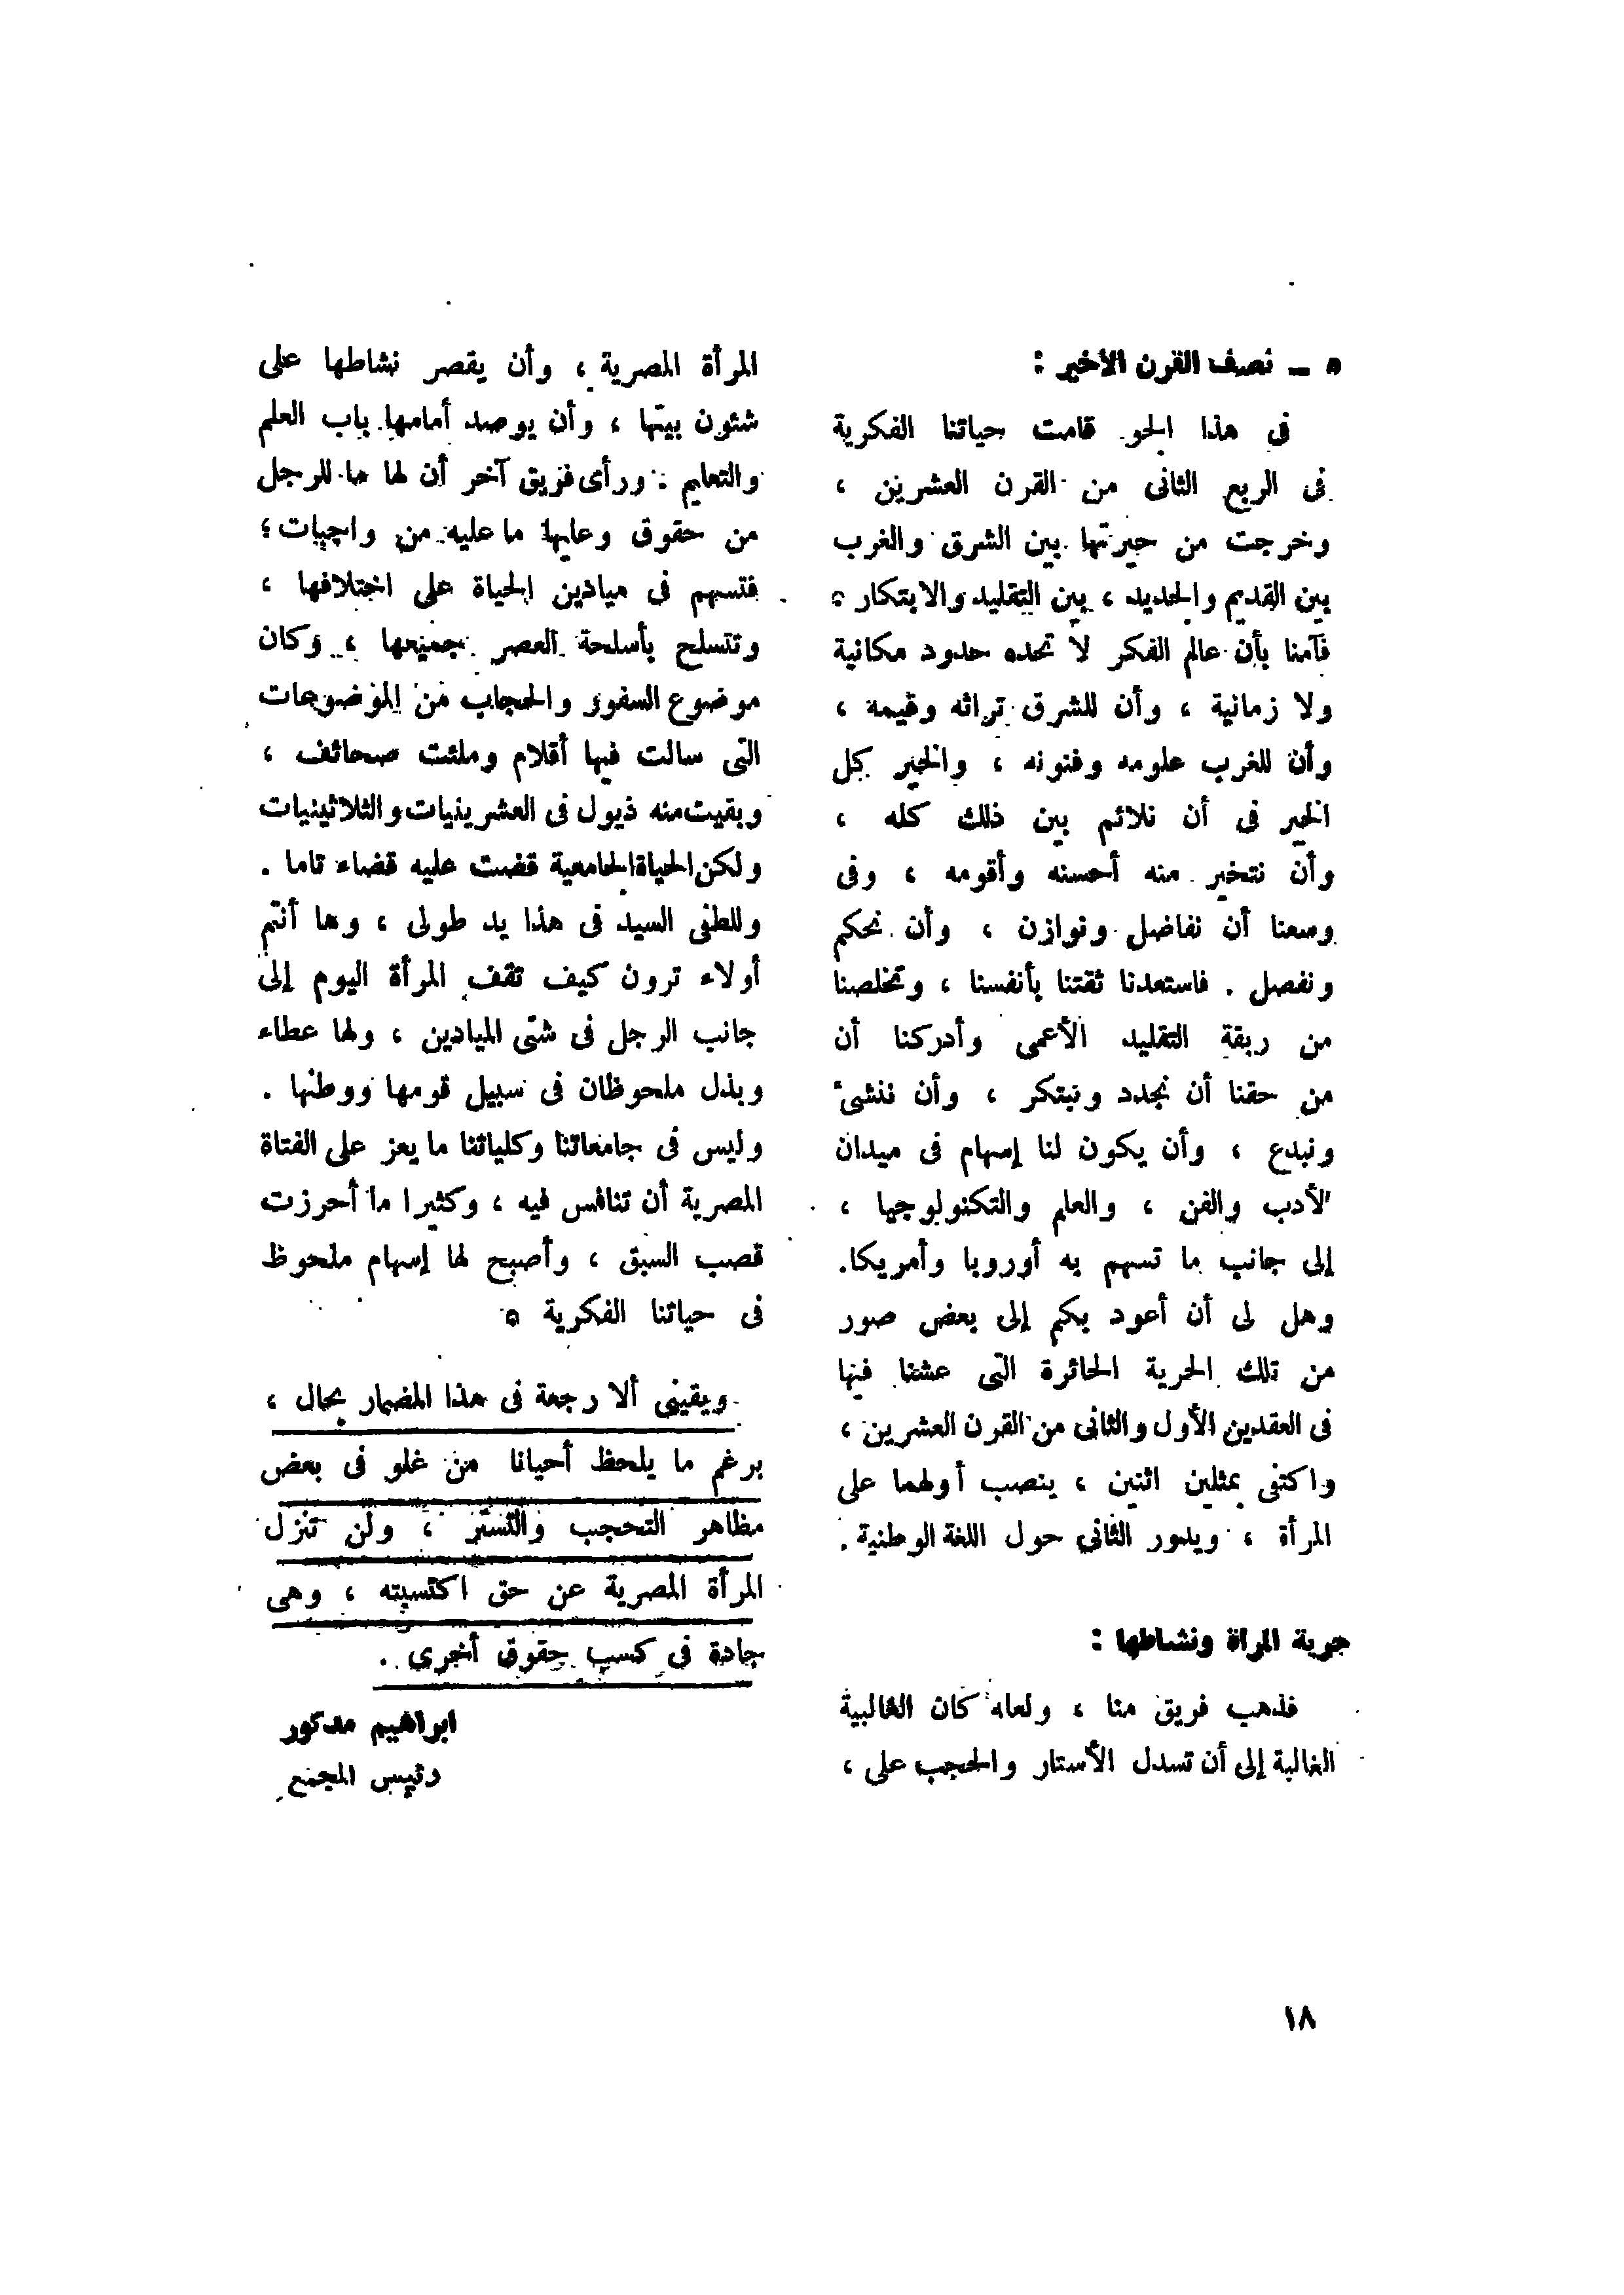 ٥ ــ نصف القرن الأخير :
فى هذا الجو قامت حياتنا الفكرية
فى الربع الثانى من القرن العشرين ،
وخرجت من حيرتها بين الشرق والغرب
بين القديم والجديد ، بين التقليد والابتكار .
فآمنا بأن عالم الفكر لا تحده حدود مكانية
ولا زمانية ، وأن للشرق تراثه وقيمه ،
وأن للغرب علومه وفنونه ، والخير كل
الخير فى أن نلائم بين ذلك كله ،
وأن نتخير منه أحسنه وأقومه ، وفى
وسعنا أن نفاضل ونوازن ، وأن نحكم
ونفصل . فاستعدنا ثقتنا بأنفسنا ، وتخلصنا
من ربقة التقليد الأعمى وأدركنا أن
من حقنا أن نجدد ونبتكر ، وأن ننشئ
ونبدع ، وأن يكون لنا إسهام فى ميدان
الأدب والفن ، والعلم والتكنولوجيا ،
إلى جانب ما تسهم به أوروبا وأمريكا.
وهل لى أن أعود بكم إلى بعض صور
من تلك الحرية الحائرة التى عشنا فيها
فى العقدين الأول والثانى من القرن العشرين ،
واكتفى بمثلين اثنين ، ينصب أولهما على
المرأة ، ويدور الثانى حول اللغة الوطنية .
حرية المرأة ونشاطها :
فذهب فريق منا ، ولعله كان الغالبية
الغالبة إلى أن تسدل الأستار والحجب على ،
المرأة المصرية ، وأن يقصر نشاطها على
شئون بيتها ، وأن يوصد أمامها باب العلم
والتعليم . ورأى فريق آخر أن لها ما للرجل
من حقوق وعليها ما عليه من واجبات ؛
فتسهم فى ميادين الحياة على اختلافها ،
وتتسلح بأسلحة العصر جميعها ، وكان
موضوع السفور والحجاب من الموضوعات
التى سالت فيها أقلام وملئت صحائف ،
وبقيت منه ذيول فى العشرينيات والثلاثينيات
ولكن الحياة الجامعية قضت عليه قضاء تاما .
وللطفى السيد فى هذا يد طولى ، وها أنتم
أولاء ترون كيف تقف المرأة اليوم إلى
جانب الرجل فى شتى الميادين ، ولها عطاء
وبذل ملحوظان فى سبيل قومها ووطنها .
وليس فى جامعاتنا وكلياتنا ما يعز على الفتاة
المصرية أن تنافس فيه ، وكثيرا ما أحرزت
قصب السبق ، وأصبح لها إسهام ملحوظ
فى حياتنا الفكرية .
ويقينى ألا رجعة فى هذا المضمار بحال ،
برغم ما يلحظ أحيانا من غلو فى بعض
مظاهر التحجب والتستر ، ولن تنزل
المرأة المصرية عن حق اكتسبته ، وهى
جادة فى كسب حقوق أخرى .
ابراهيم مدكور
رئيس المجمع
١٨